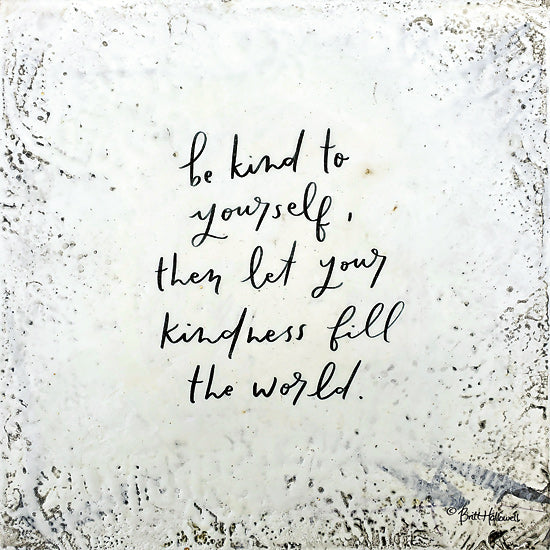 be kind to
yourself,
then let your
kindness fill
the world.
© Britt Hallowell